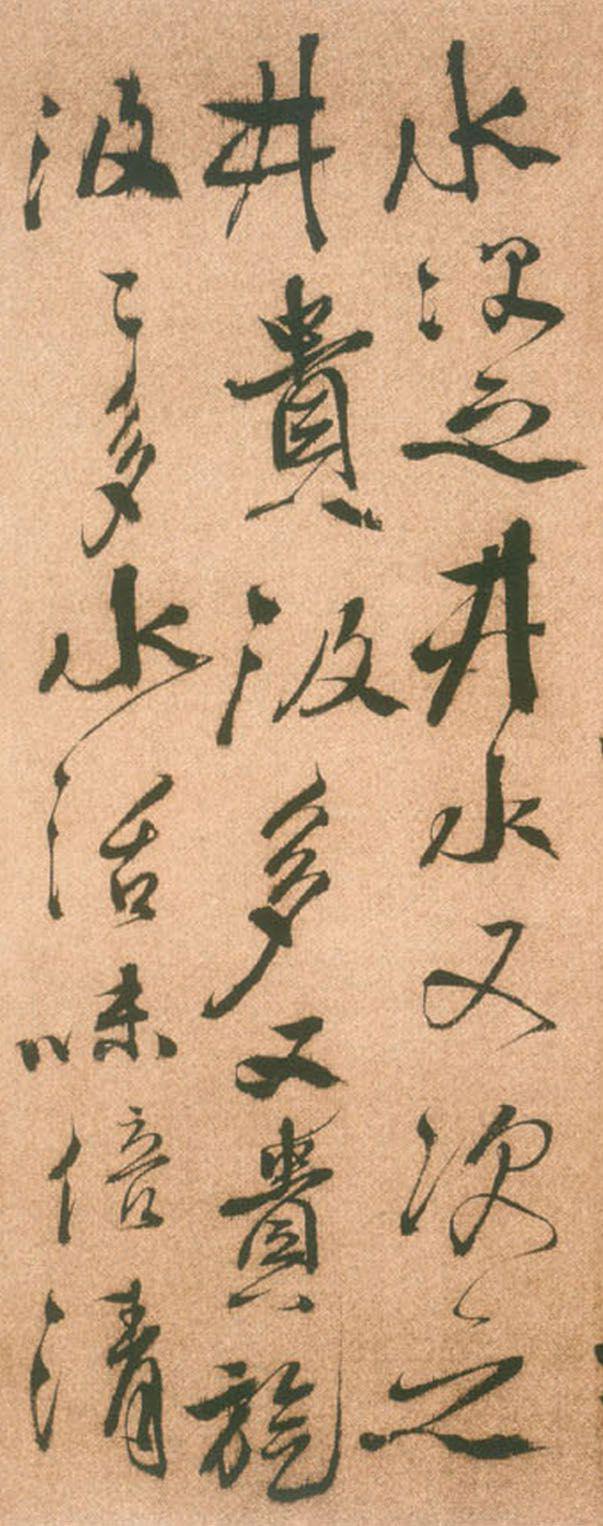 水次之井水又次之
井貴汲多又貴旋
汲〻多水活味倍清